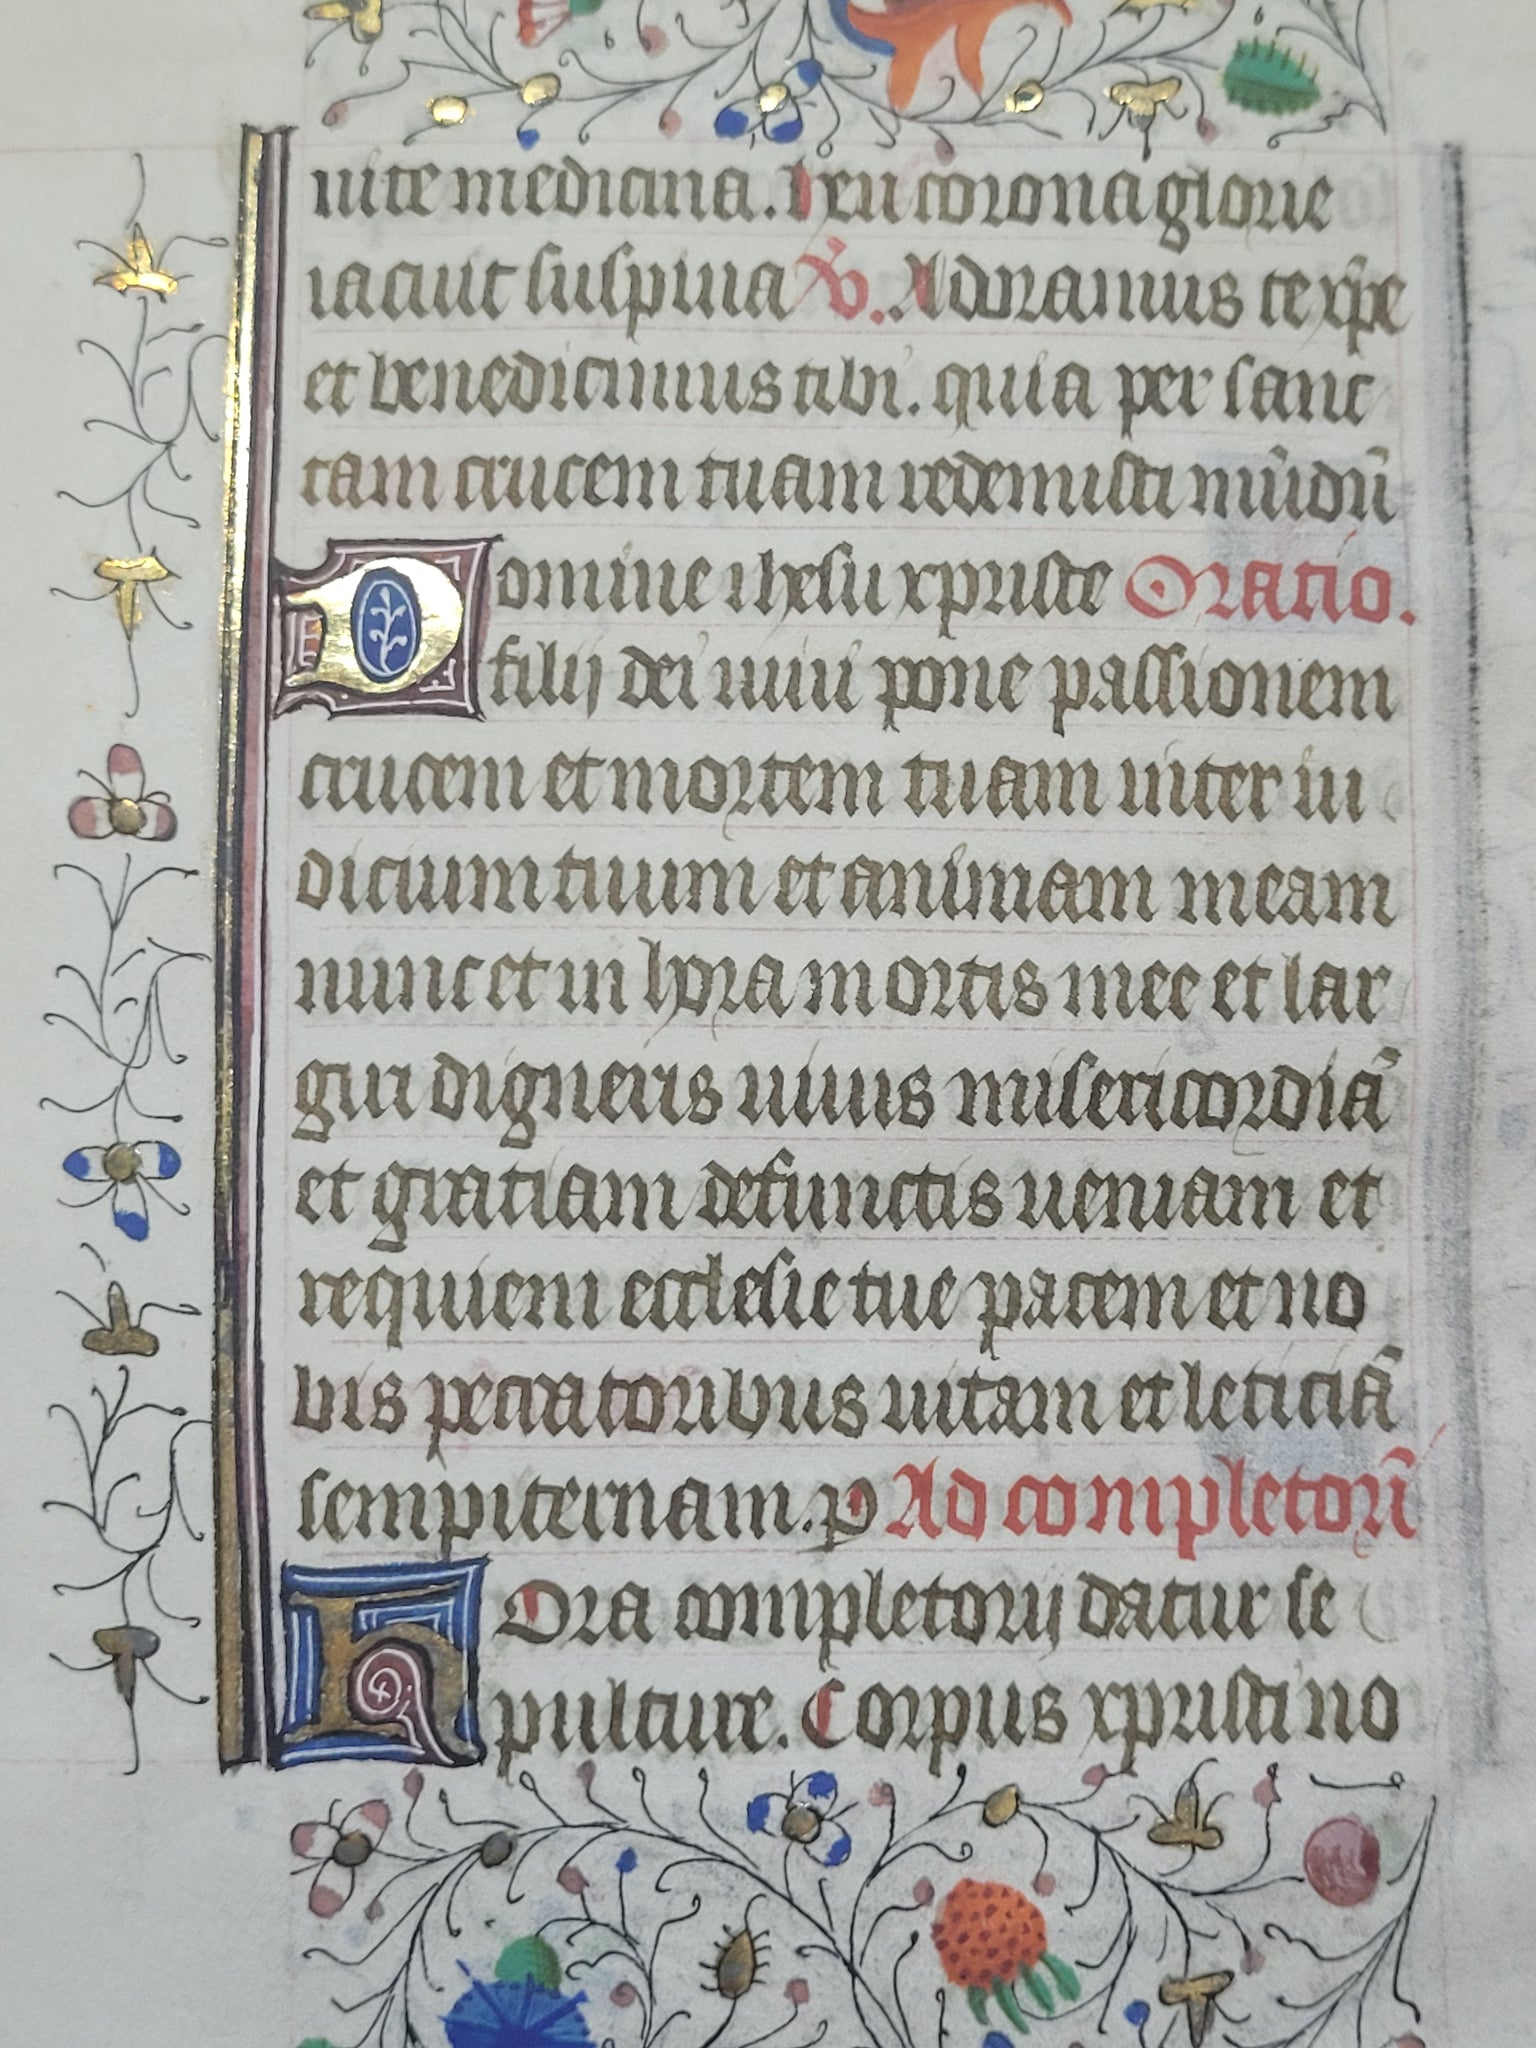 uite medicina. heu corona glorie
iacuit suspina ℣. Adoramus te xp̄e
et benedicimus tibi. quia per sanc
tam crucem tuam redemisti mūdū
Domine ihesu xpriste Oratio.
filij dei uiui pone passionem
crucem et mortem tuam inter iu
dicium tuum et animam meam
nunc et in hora mortis mee et lar
giri digneris uiuis misericordiā
et gratiam defunctis ueniam et
requiem ecclesie tue pacem et no
bis peccatoribus uitam et leticiā
sempiternam. p Ad completorū
Hora completorij datur se
pulture. Corpus xpristi no